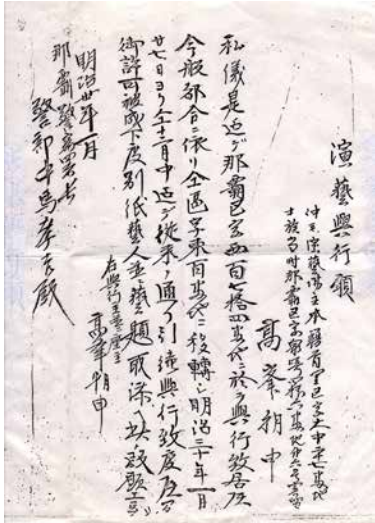 演藝興行願
演藝場主本籍首里區字大中七番地
士族當時那霸區字番地
高峯朝申
私儀是迄デ那霸區字西百七拾四番地ニ於テ興行致居候
今般都合ニ依リ仝區字東百番地ニ移轉シ明治三十年一月
廿七日ヨリ仝十二月中迄デ従来ノ通リ引続興行致度
御許可被成下度別紙藝人並藝題取添ヘ此段願上
右興行主
高峯朝申
明治卅年一月
那霸警察署長
警部中馬殿